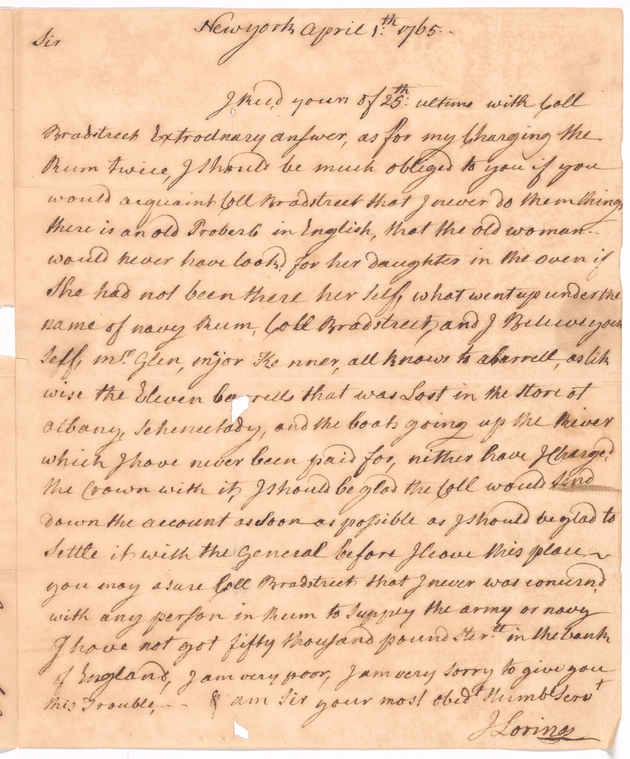 New york April 1.th 1765.
Sir
I Recd yours of 25th: ultimo with Coll
Bradstreet Extrodnary answer, as for my Charging the
Rum twice, I Should be much obliged to you if you
would acquaint Coll Bradstreet that I never do them things
there is an old Proverb in English, that the old woman
would never have lookd for her daughter in the oven if
She had not been there her Self, what went up under the
name of navy Rum, Coll Bradstreet, and I Believe your
Self, mr. Glen, mjor, all knows to a barrell, as lik
wise the Eleven barrells that was Lost in the store at
Albany, Schenectady, and the boats going up the River
which I have never been paid for, nither have I Charged
the Crown with it, I should be glad the Coll would Send
down the account as Soon as possible as I should be glad to
Settle it with the General before I leave this place
you may asure Coll Bradstreet that I never was concernd
with any person in Rum to Supply the army or navy
I have not got fifty thousand pound Ster.ll in the bank
of England, I am very poor, I am very sorry to give you
this Trouble, am Sir your most obedt Humbl Servt
J Loring